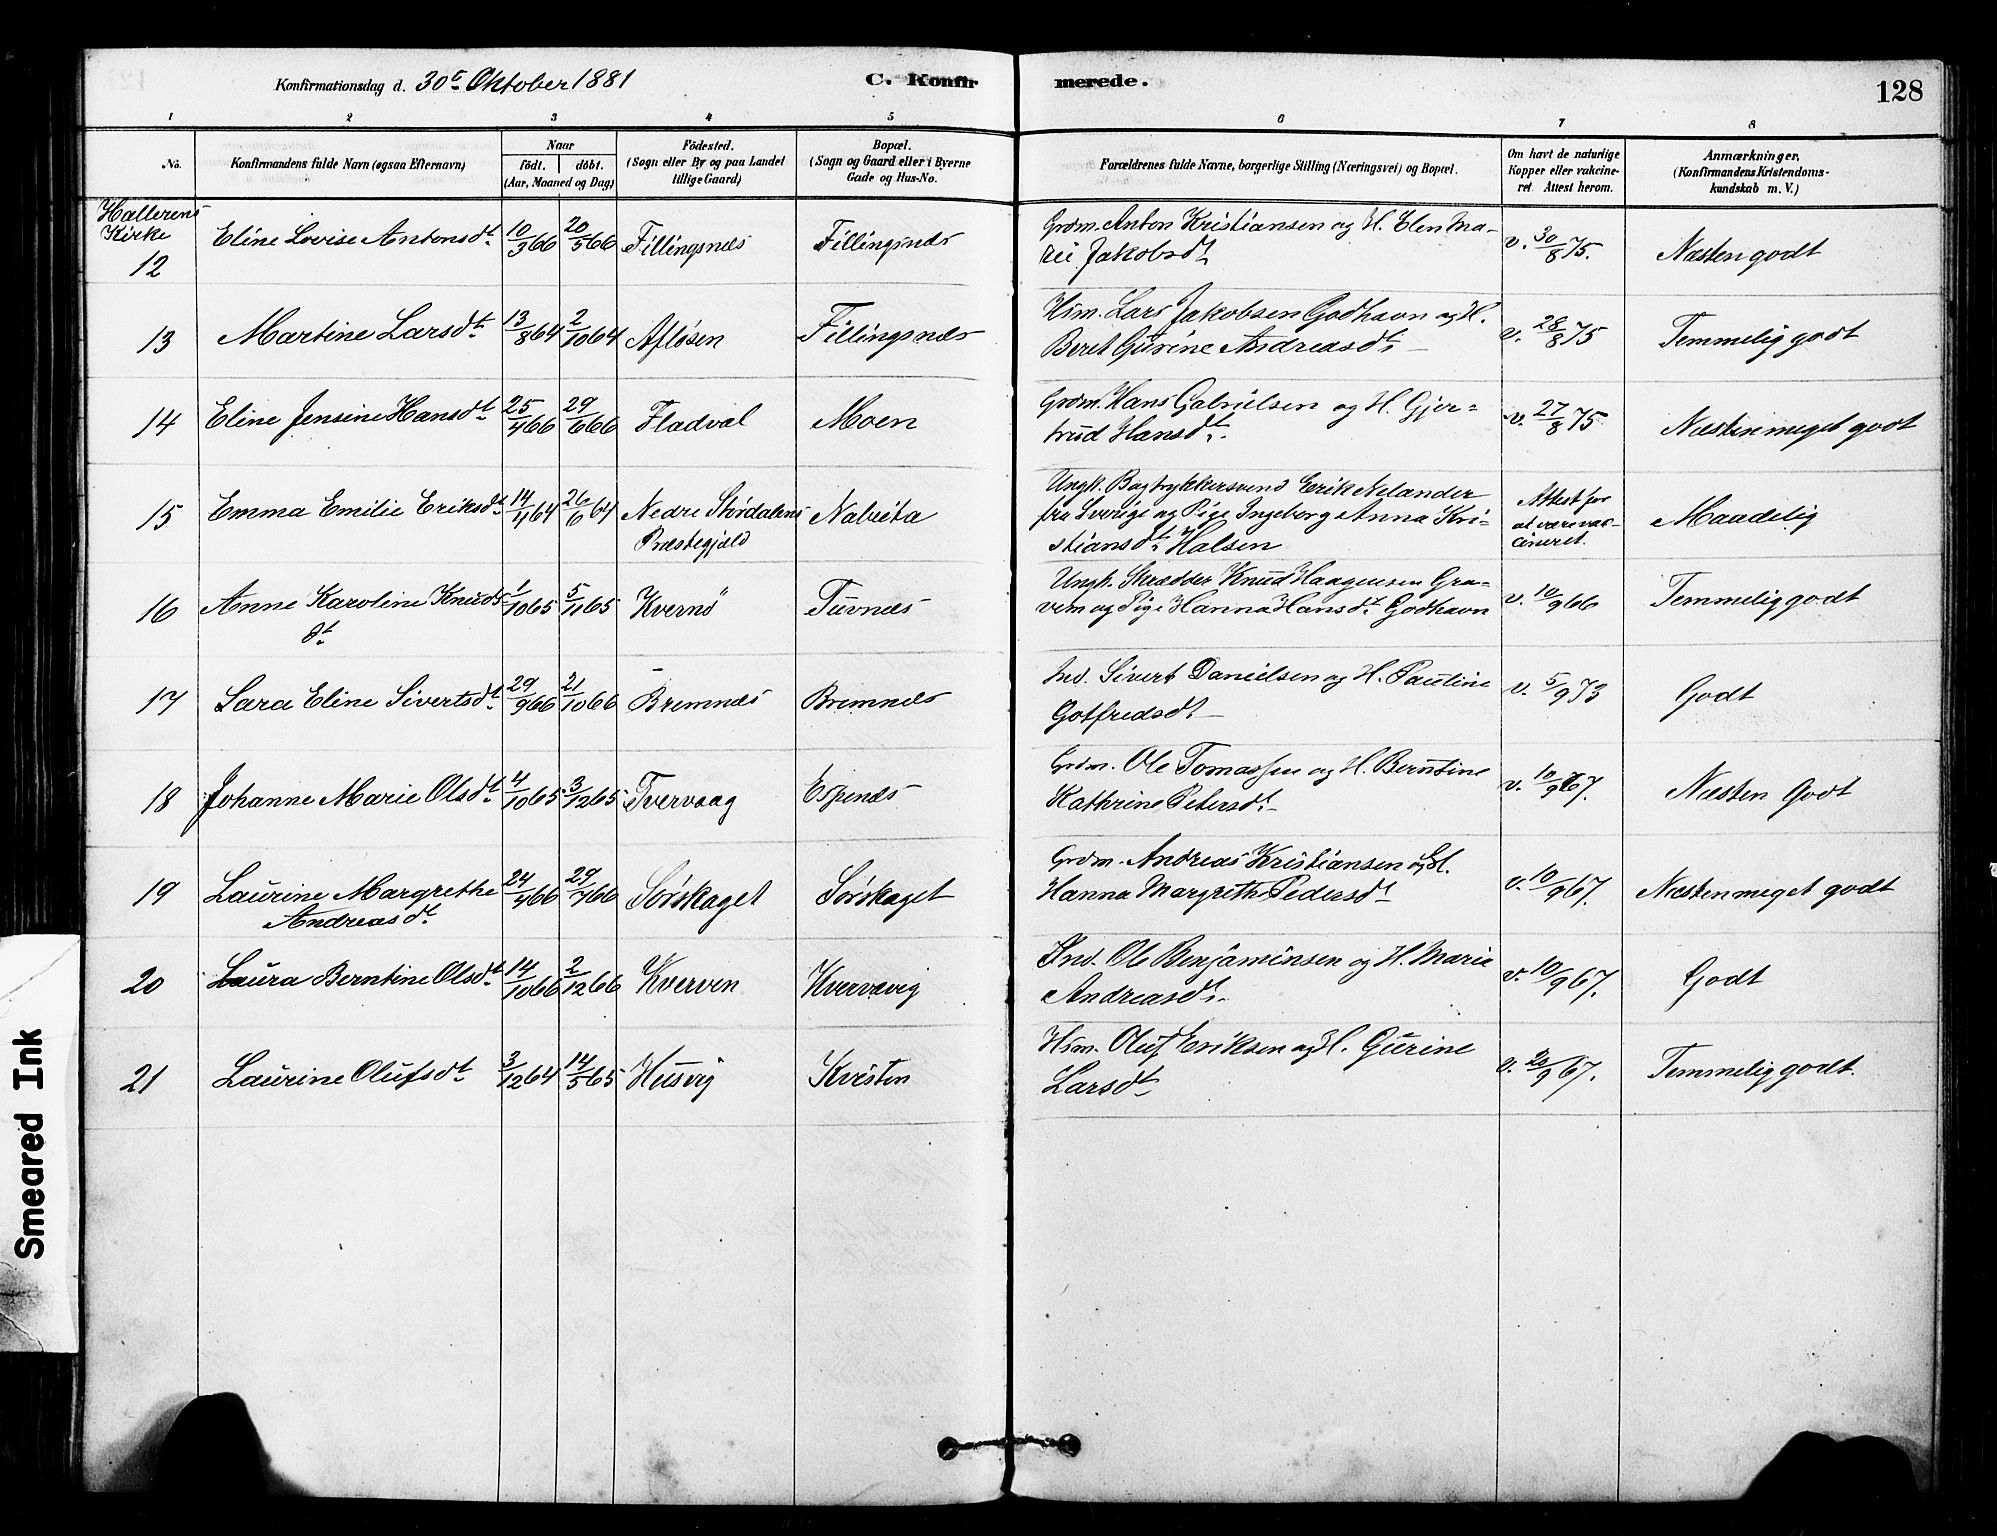 Konfirmationsdag d. 30te Oktober 1881
C. Konfirmerede.
128
1 2 3 4 5 6 7 8
No.
Konfirmandens fulde Navn (ogsaa Efternavn)
Naar
födt. döbt.
(Aar, Maaned og Dag)
Födested.
(Sogn eller By og paa Landet
tillige Gaard)
Bopæl.
(Sogn og Gaard eller i Byerne
Gade og Hus-No.
Forældrenes fulde Navne, borgerlige Stilling (Næringsvei) og Bopæl.
Om havt de naturlige
Kopper eller vakcine-
ret. Attest herom.
Anmærkninger.
(Konfirmandens Kristendoms-
kundskab m. V.)
Hallerens
Kirke
12 Eline Lovise Antonsdt. 10/3 66 20/5 66 Fillingsnæs Fillingsnæs
Grdm. Anton Kristiansen og H. Elen Ma-
rie Jakobsdt. v. 30/8 75. Næsten godt
13 Martine Larsdt. 13/8 64 2/10 64 Afløsen Fillingsnæs
Hsm. Lars Jakobsen Godhavn og H.
Beret Gurine Andreasdt. v. 28/8 75 Temmelig godt
14 Eline Jensine Hansdt. 25/4 66 29/6 66 Fladval Moen
Grdm. Hans Gabrielsen og H. Gjer-
trud Hansdt. v. 27/8 75 Næsten meget godt
15 Emma Emilie Eriksdt. 14/4 64 26/6 64 Nedre Stördalens
Præstegjæld
Ungk. Bogtrykkersvend Erik Nelander
fra Sverige og Pige Ingeborg Anna Kri-
stiansdt. Halsen
Attest for
at være vac-
cineret.
Maadelig
16 Anne Karoline Knuds-
dt. 1/10 65 5/11 65 Kvernö Tuvnæs
Ungk. Skrædder Knud Haagensen Gra-
vem og Pige Hanna Hansdt. Godhavn v. 10/9 66 Temmelig godt
17 Sara Eline Sivertsdt. 29/9 66 21/10 66 Bremnæs Bremnæs
Ind. Sivert Danielsen og H. Pauline
Gotfredsdt. v. 5/9 73 Godt
18 Johanne Marie Olsdt. 4/10 65 3/12 65 Tvervaag Espenæs
Grdm. Ole Tomassen og H. Berntine
Kathrine Petersdt. v. 10/9 67. Næsten Godt
19 Laurine Margrethe
Andreasdt. 24/4 66 29/7 66 Sörskaget Sörskaget
Grdm. Andreas Kristiansen og H.
Hanna Margrethe Pedersdt. v. 10/9 67. Næsten meget godt
20 Laura Berntine Olsdt. 14/10 66 2/12 66 Kverven Kvervavig
Ind. Ole Benjaminsen og H. Marie
Andreasdt. v. 10/9 67. Godt
21 Laurine Olufsdt. 3/12 64 14/5 65 Husvig Kvisten
Hsm. Oluf Eriksen og H. Gurine
Larsdt. v. 20/9 67. Temmelig godt.
Smeared Ink